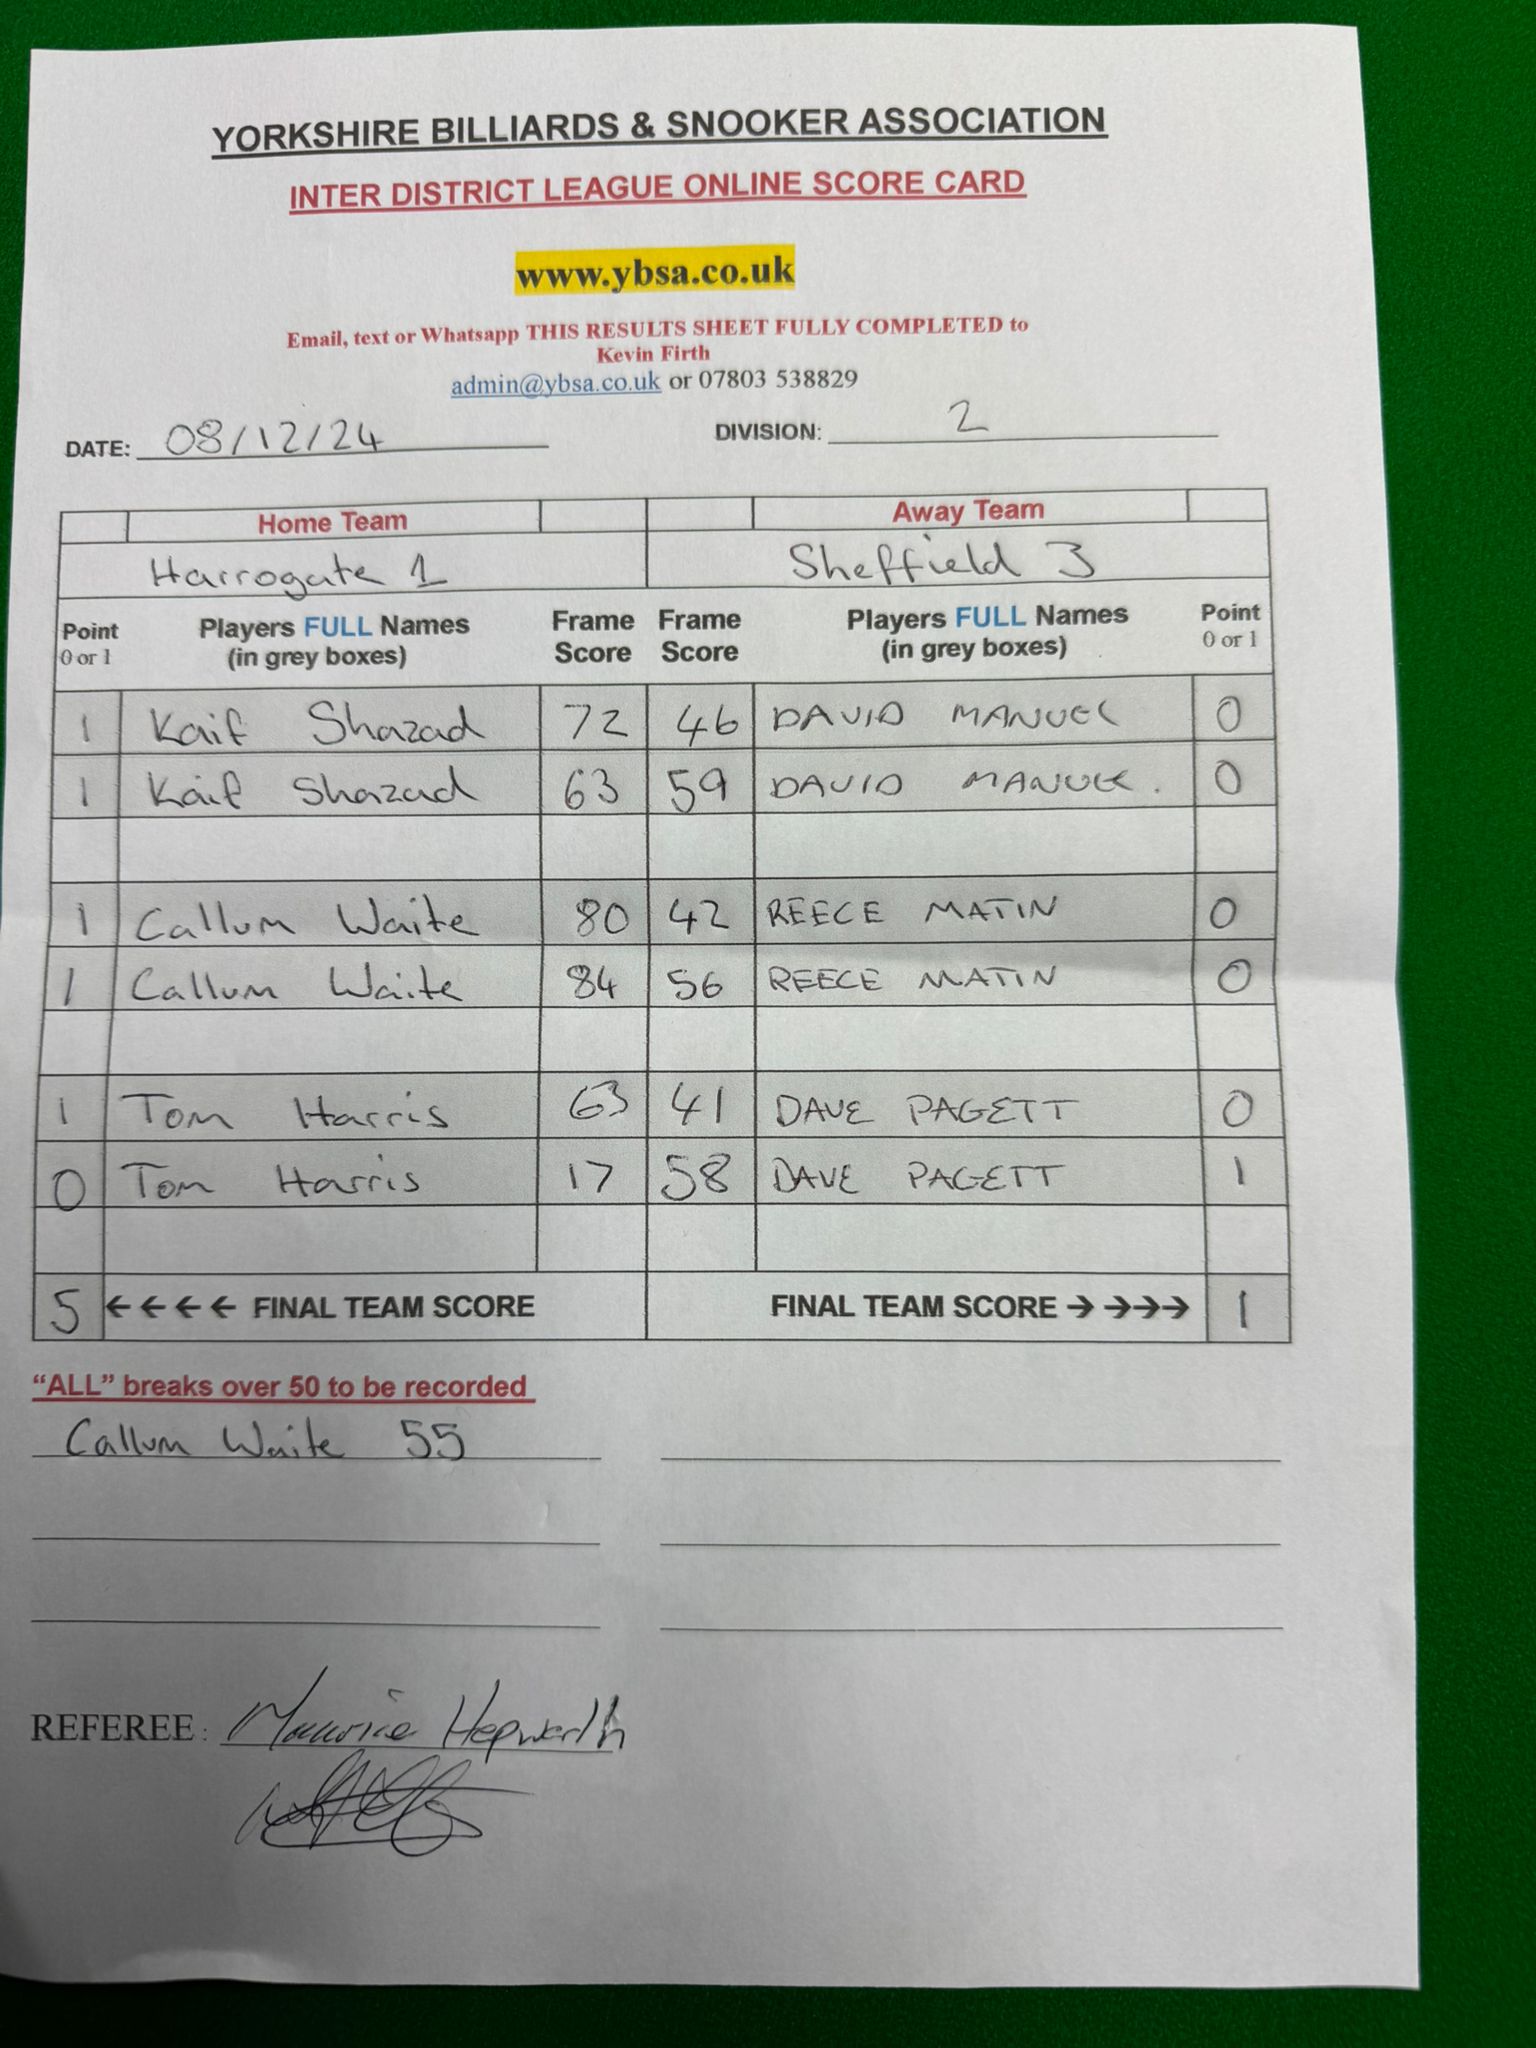 YORKSHIRE BILLIARDS & SNOOKER ASSOCIATION
INTER DISTRICT LEAGUE ONLINE SCORE CARD
www.ybsa.co.uk
Email, text or Whatsapp THIS RESULTS SHEET FULLY COMPLETED to
Kevin Firth
admin@ybsa.co.uk or 07803 538829
DATE: 08/12/24 DIVISION: 2
Home Team Away Team
Harrogate 1 Sheffield 3
Point Players FULL Names Frame Frame Players FULL Names Point
0 or 1 (in grey boxes) Score Score (in grey boxes) 0 or 1
1 Kaif Shazad 72 46 DAVID MANUEL 0
1 Kaif Shazad 63 59 DAVID MANUEL. 0
1 Callum Waite 80 42 REECE MATIN 0
1 Callum Waite 84 56 REECE MATIN 0
1 Tom Harris 63 41 DAVE PAGETT 0
0 Tom Harris 17 58 DAVE PAGETT 1
5 ←←←← FINAL TEAM SCORE FINAL TEAM SCORE → →→→ 1
“ALL” breaks over 50 to be recorded
Callum Waite 55
REFEREE: Maurice Hepworth